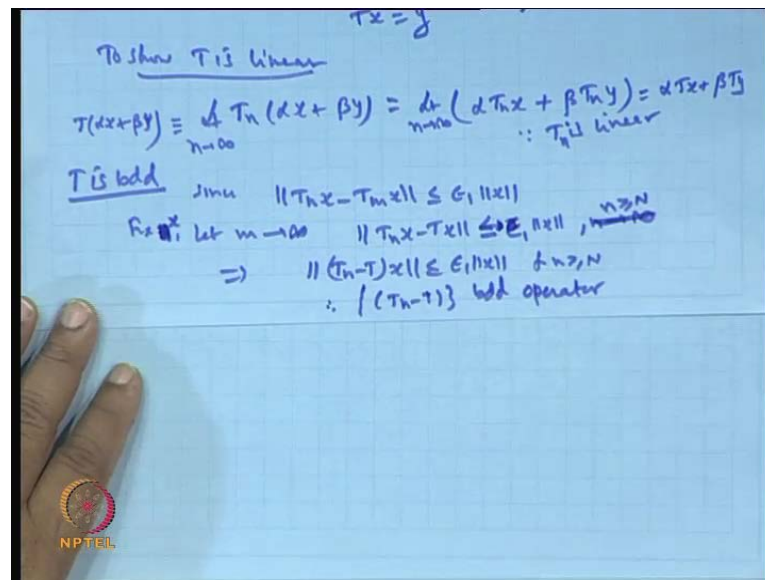 Tx = y
To show T is linear
T(αx+βy) ≡ lt n→∞ Tn (αx + βy) = lt n→∞ (α Tn x + β Tn y) = α Tx + β Ty
∵ Tn is linear
T is bdd since ||Tn x - Tm x|| ≤ ε₁ ||x||
Fix x, Let m → ∞ ||Tn x - Tx|| ≤ ε₁ ||x||, n ≥ N
⇒ ||(Tn - T) x|| ≤ ε₁ ||x|| n ≥ N
∴ {(Tn - T)} bdd operator
NPTEL